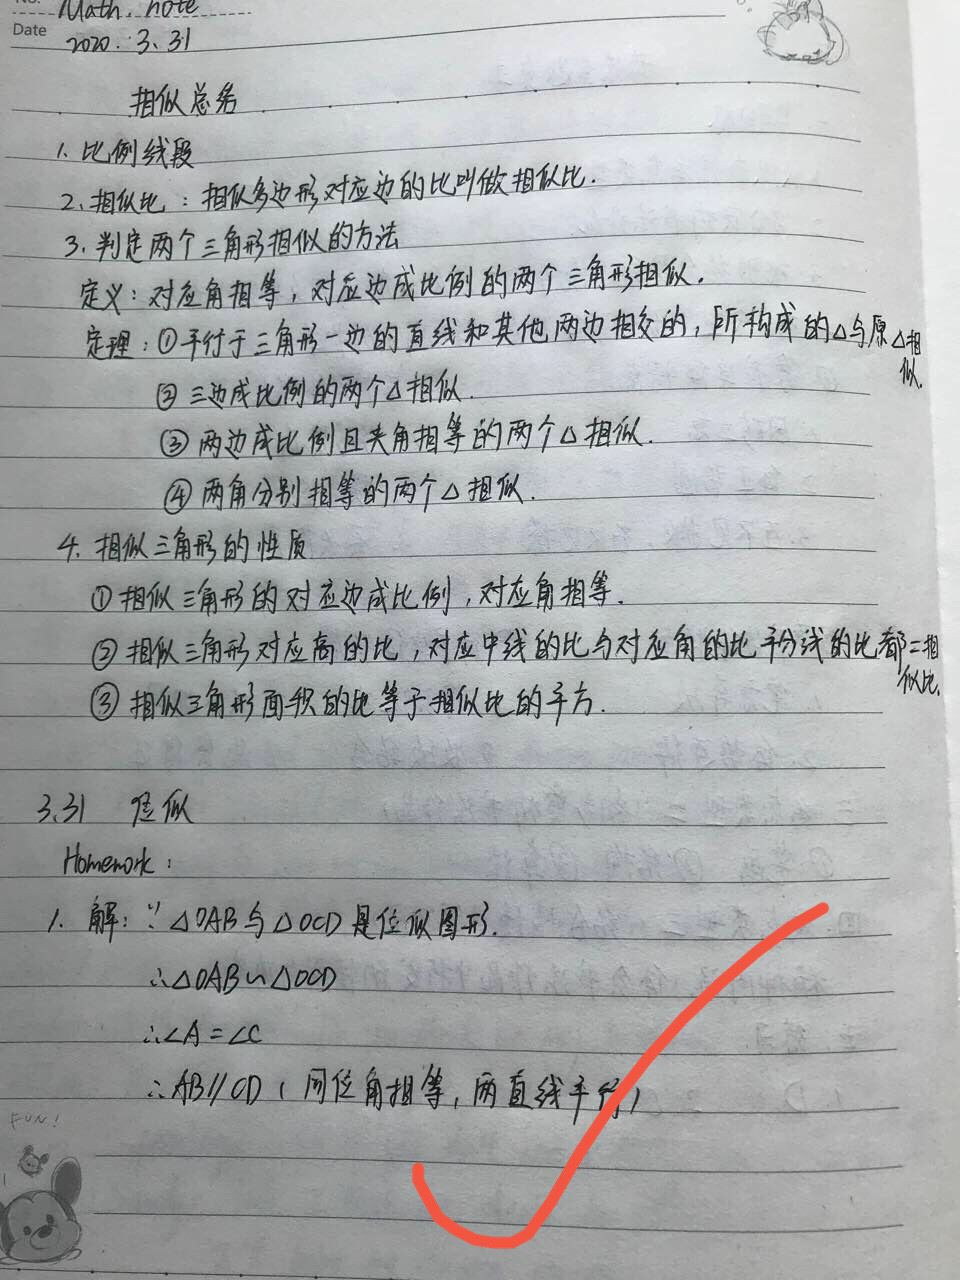 No.
Math. note
Date
2020. 3. 31
相似总务
1. 比例线段
2. 相似比：相似多边形对应边的比叫做相似比.
3. 判定两个三角形相似的方法
定义：对应角相等，对应边成比例的两个三角形相似.
定理：①平行于三角形一边的直线和其他两边相交的，所构成的△与原△相似.
② 三边成比例的两个△相似.
③ 两边成比例且夹角相等的两个△相似.
④ 两角分别相等的两个△相似.
4. 相似三角形的性质
① 相似三角形的对应边成比例，对应角相等.
② 相似三角形对应高的比，对应中线的比与对应角的比平分线的比都=相似比.
③ 相似三角形面积的比等于相似比的平方.
3.31 位似
Homework：
1. 解：∵△OAB与△OCD是位似图形.
∴△OAB∽△OCD
∴∠A=∠C
∴AB//CD（同位角相等，两直线平行）
FUN!